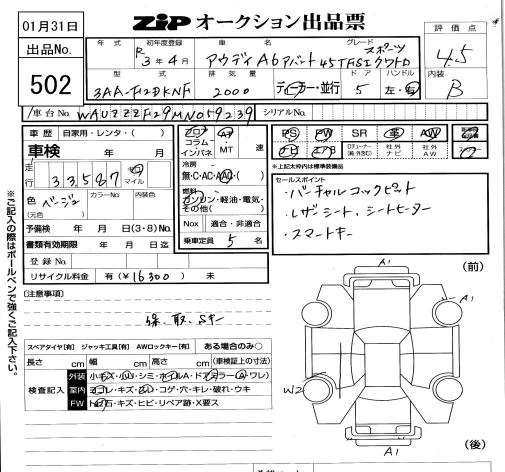 01月31日
ZIP オークション出品票
出品No.
502
年式
初年度登録
車名
グレード
R 3年4月
アウディA6アバント
スポーツ
45TFSIクワトロ
型式
排気量
ドア
ハンドル
3AA-F2DKNF
2000
ディーラー・並行
5
左・右
評価点
4.5
内装
B
車台No.
WAUZZZF29MN059239
シリアルNo.
車歴
自家用・レンタ・( )
車検
年
月
走行
33,587
km
マイル
色
ベージュ
(元色)
カラーNo.
内装色
予備検 年 月 日(3・8)No.
書類有効期限 年 月 日迄
登録No.
リサイクル料金 有(¥16300) 未
フロア
コラム
インパネ
AT
MT
速
冷房
無・C・AC・AAC・( )
燃料
ガソリン・軽油・電気・
その他( )
Nox 適合・非適合
乗車定員 5 名
PS
PW
SR
革
AW
ナビ
エアB
社外
ナビ
社外
AW
*上記太文字内は標準装備品
セールスポイント
・バーチャルコックピット
・レザーシート、シートヒーター
・スマートキー
※ご記入の際はボールペンで強くご記入下さい。
(注意事項)
保、取、Sキー
スペアタイヤ[有] ジャッキ工具[有] AWロックキー[有] ある場合のみ○
長さ cm 幅 cm 高さ cm (車検証上の寸法)
検査記入
外装
室内 ヨゴレ・キズ・スレ・コゲ・穴・キレ・破れ・ウキ
FW トビ石・キズ・ヒビ・リペア跡・X要ス
(前)
A1
A1
W2
A1
(後)